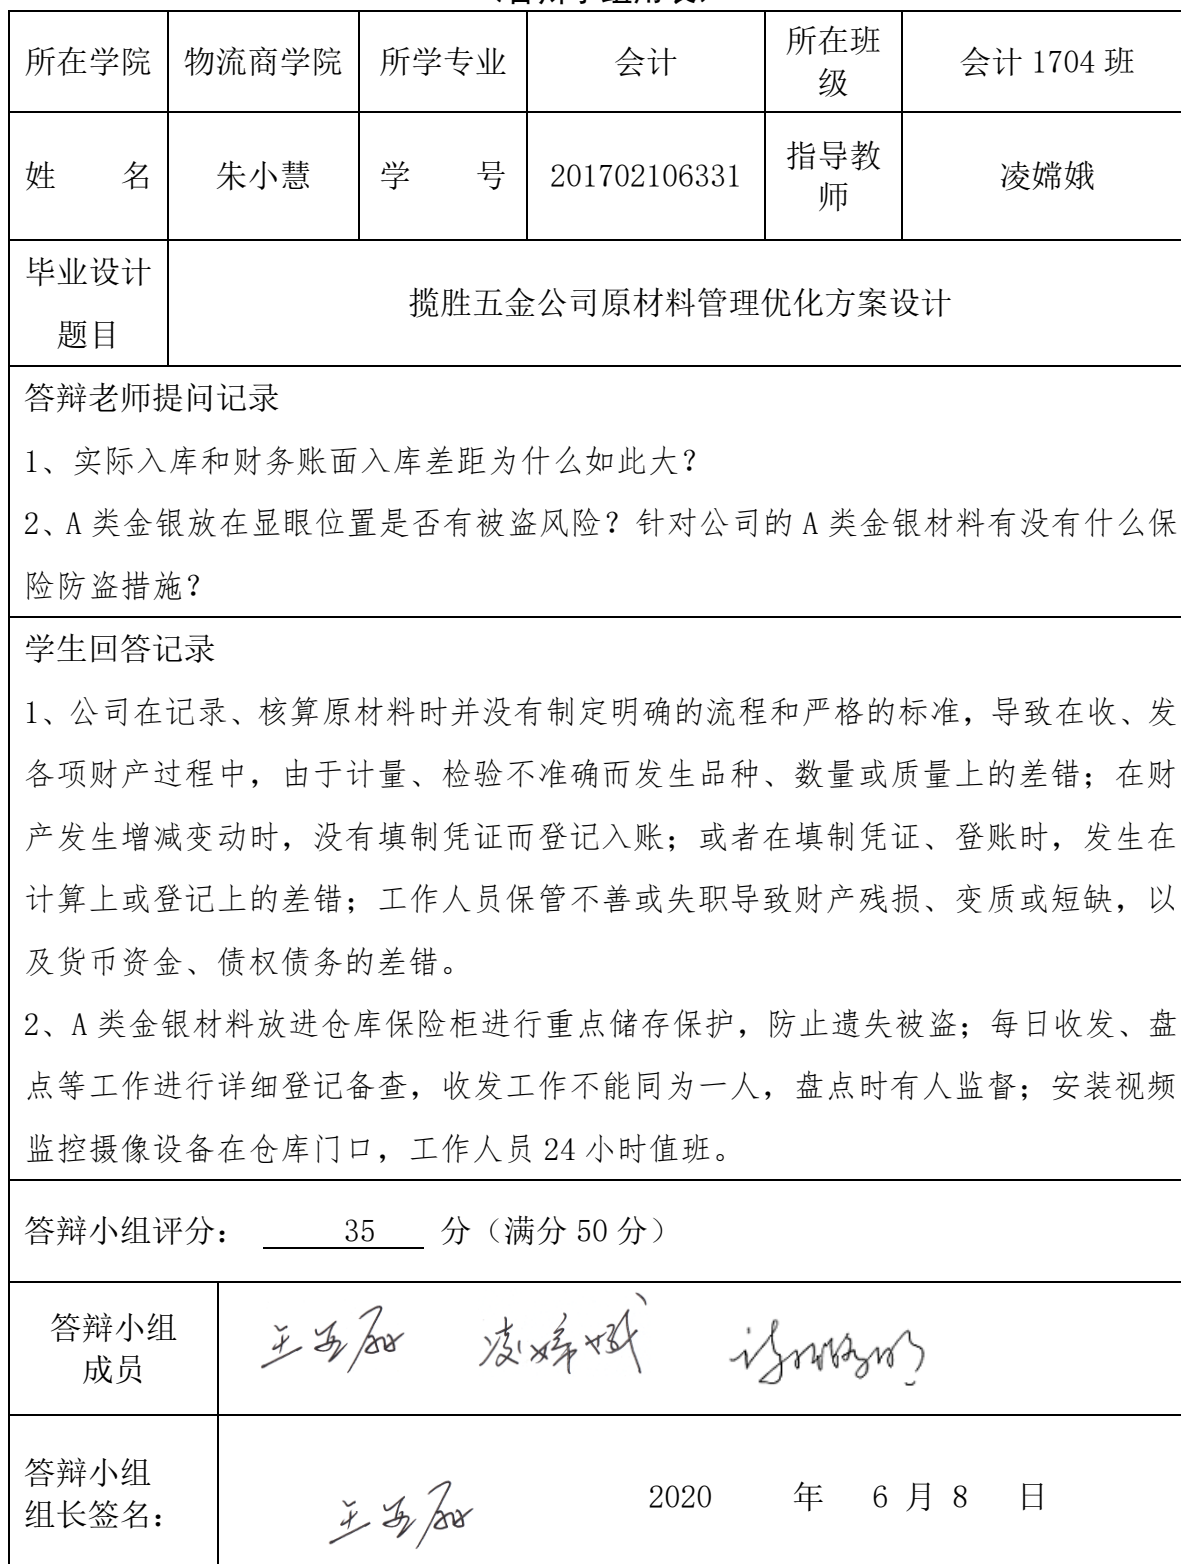 所在学院 物流商学院 所学专业 会计 所在班级 会计 1704 班
姓 名 朱小慧 学 号 201702106331 指导教师 凌嫦娥
毕业设计题目 揽胜五金公司原材料管理优化方案设计
答辩老师提问记录
1、实际入库和财务账面入库差距为什么如此大？
2、A 类金银放在显眼位置是否有被盗风险？针对公司的 A 类金银材料有没有什么保
险防盗措施？
学生回答记录
1、公司在记录、核算原材料时并没有制定明确的流程和严格的标准，导致在收、发
各项财产过程中，由于计量、检验不准确而发生品种、数量或质量上的差错；在财
产发生增减变动时，没有填制凭证而登记入账；或者在填制凭证、登账时，发生在
计算上或登记上的差错；工作人员保管不善或失职导致财产残损、变质或短缺，以
及货币资金、债权债务的差错。
2、A 类金银材料放进仓库保险柜进行重点储存保护，防止遗失被盗；每日收发、盘
点等工作进行详细登记备查，收发工作不能同为一人，盘点时有人监督；安装视频
监控摄像设备在仓库门口，工作人员 24 小时值班。
答辩小组评分： 35 分（满分 50 分）
答辩小组成员 凌嫦娥
答辩小组
组长签名： 2020 年 6 月 8 日